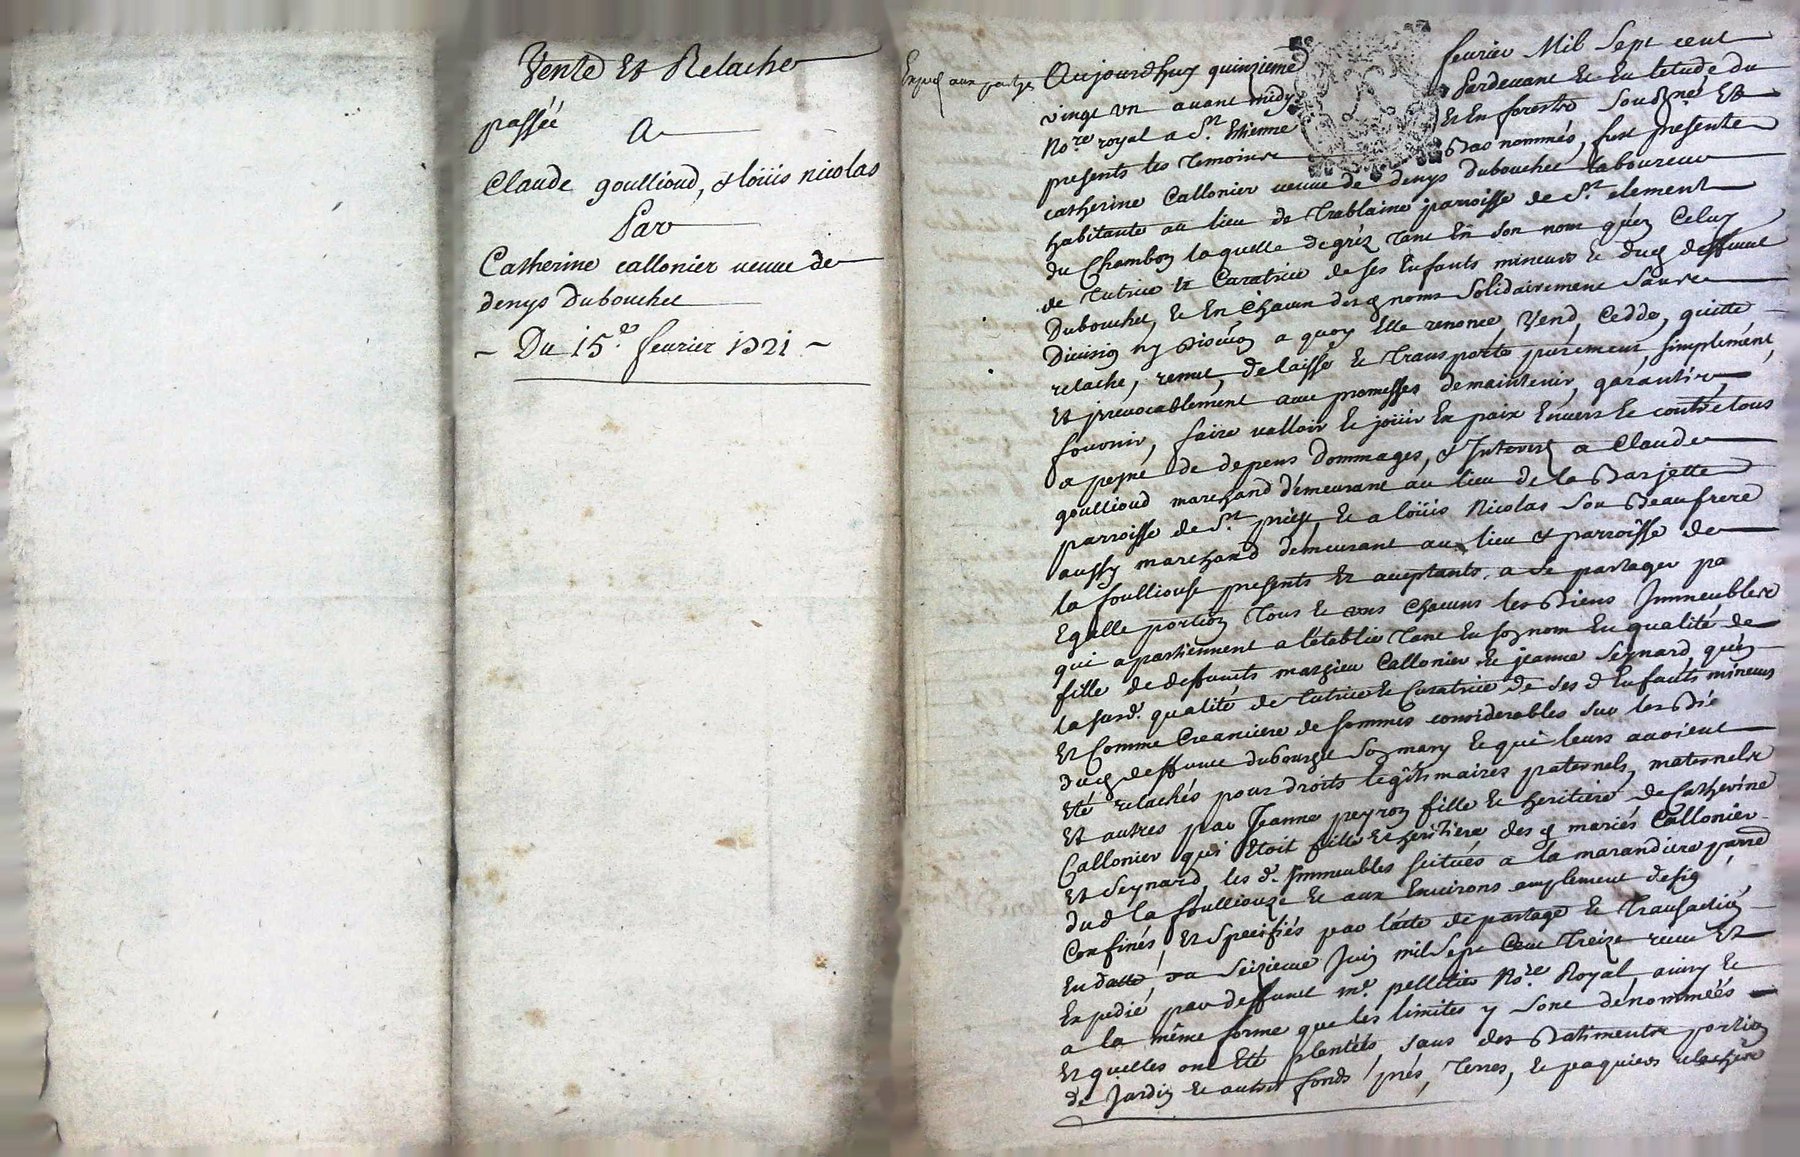 Vente Et Relache
passée
A
Claude goullioud, & loüis nicolas
Par
Catherine callonier veuve de
denys Dubouchet
~ Du 15.e feurier 1721 ~
Expedié aux partyes
Aujourdhuy quinzieme feurier Mil Sept cent
vingt un avant midy Pardevant Et En letude du
No.re royal a S.t Etienne Et En forests Sousigné Et
presents les temoins Bas nommés, fust presente
catherine Callonier veuve de denys Dubouchet laboureur
habitante au lieu de Trablaine parroisse de S.t clement
du Chambon laquelle de gréz tant En son nom qu'en Celuy
de tutrice Et Curatrice de ses Enfants mineurs & dud deffunt
Dubouchet, & En chacun desd noms Solidairement Sans
Division ny discution a quoy Elle renonce, Vend, Cedde, quitte
relache, remet, delaisse & Transporte purement, simplement,
Et jrrevocablement avec promesses de maintenir, garantir,
fournir, faire valloir & joüir En paix Envers & contre tous
a peyne de depens Dommages, & Interest a Claude
goullioud marchand demeurant au lieu de la Barjette
parroisse de S.t priest, & a loüis Nicolas Son Beaufrere
aussy marchand demeurant au lieu & parroisse de
la foulliouse presents Et aceptants, a se partager pa
Egalle portion Tous & vns Chacuns les Biens Jmmeubles
qui apartiennent a letablie Tant En son nom En qualité de
fille de deffunts mathieu Callonier & jeanne Seynard, qu'en
la susd. qualité de tutrice & Curatrice de ses d Enfants mineurs
Et Comme Creanciere de sommes considerables sur les Bie
dud deffunt dubouchet Son mary & qui leurs avoient
Eté relachés pour droits legitimaires paternels, maternels
Et autres par Jeanne peyron fille & heritiere de Catherine
Callonier qui Etoit fille & heritiere desd mariés Callonier
Et Seynard, les d. Jmmeubles scitués a la marandiere parre
dud la foulliouze & aux Environs amplement desig
Confinés, Et Specifiés par l'acte de partage & Transaction
En datte du Seizieme Juin mil Sept Cent Treize receu Et
Expedié par deffunt m.e pelletier No.re Royal, ainsy &
a la même forme que les limites y sont dénommées
Et qu'elles ont Eté plantées, sans des Batiments portion
de Jardin & autres fonds, prés, Terres, & paquiers relachés